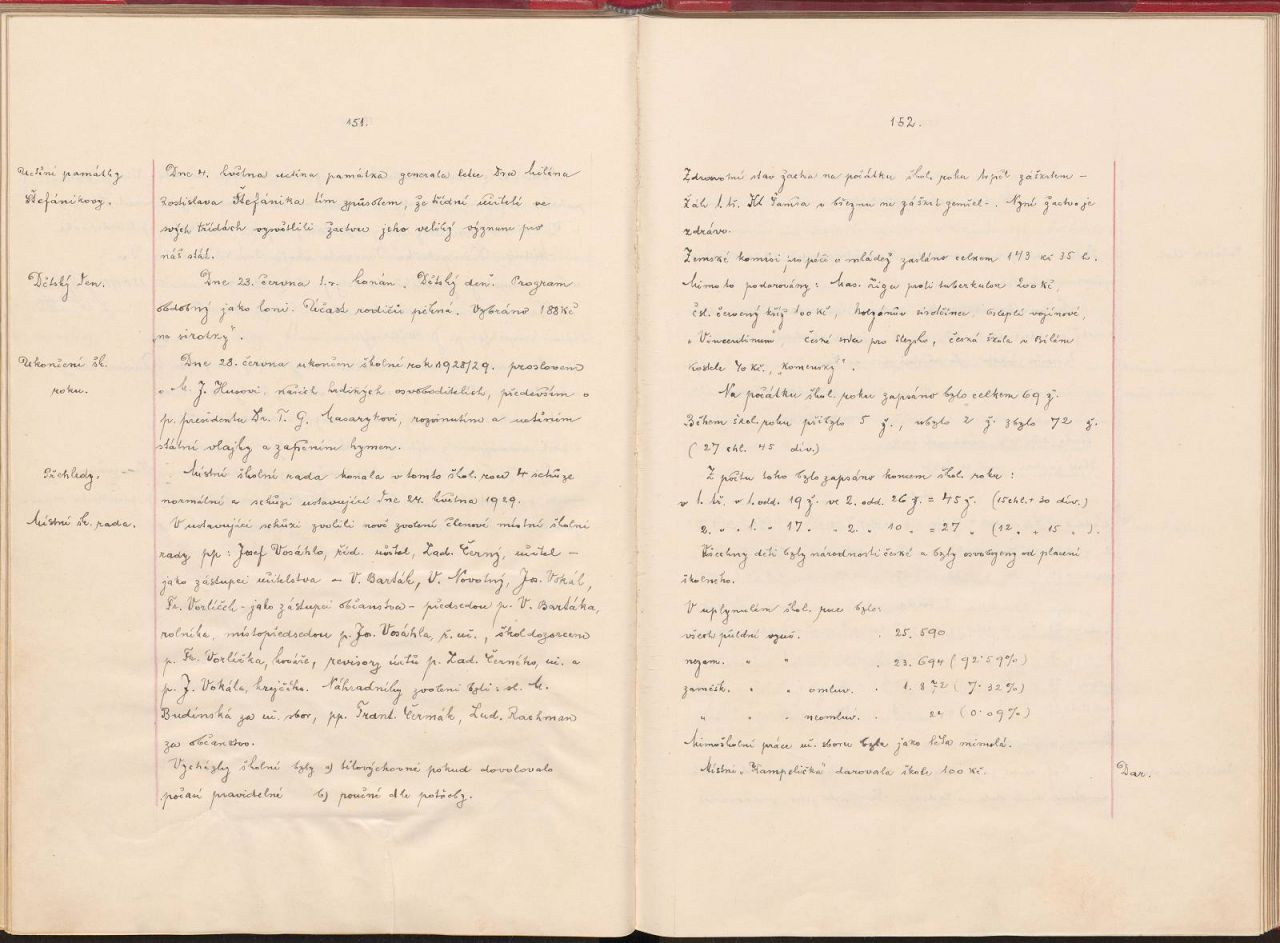 151.
Uctění památky
Štefánikovy.
Dne 4. května uctěna památka generála letce Dra Milána
Rostislava Štefánika tím způsobem, že třídní učitelé ve
svých třídách vysvětlili žactvu jeho veliký význam pro
náš stát.
Dětský den.
Dne 23. června t.r. konán „Dětský den". Program
obdobný jako loni. Účast rodičů pěkná. Vybráno 188 Kč
„na sirotky".
Ukončení šk.
roku.
Dne 28. června ukončen školní rok 1928/29. proslovem
o M. J. Husovi, našich hrdinných osvoboditelích, především o
p. presidentu Dr. T. G. Masarykovi, rozvinutím a uctěním
státní vlajky a zapěním hymen.
Přehledy.
Místní školní rada konala v tomto škol. roce 4 schůze
normální a schůzi ustavující dne 24. května 1929.
Místní šk. rada.
V ustavující schůzi zvolili nově zvolení členové místní školní
rady pp: Josef Vosáhlo, říd. učitel, Lad. Černý, učitel –
jako zástupci učitelstva – V. Barták, V. Novotný, Jos. Vokál,
Fr. Vorlíček – jako zástupci občanstva – předsedou p. V. Bartáka,
rolníka, místopředsedou p. Jos. Vosáhla, ř. uč., škol dozorcem
p. Fr. Vorlíčka, kováře, revisory účtů p. Lad. Černého, uč. a
p. J. Vokála, krejčího. Náhradníky zvoleni byli: sl. M.
Budínská za uč. sbor, pp. Frant. Čermák, Lud. Rachman
za občanstvo.
Vycházky školní byly a) tělovýchovné pokud dovolovalo
počasí pravidelně b) poučné dle potřeby.
152.
Zdravotní stav žactva na počátku škol. roku trpěl záškrtem –
žák 1. tř. v březnu na záškrt zemřel –. Nyní žactvo je
zdrávo.
Zemské komisi pro péči o mládež zasláno celkem 143 Kč 35 h.
Mimo to podporovány: Mas. liga proti tuberkulose 200 Kč,
čsl. červený kříž 100 Kč, sirotčince, oslepli vojínové,
„Vincentinum", česká srdce pro Slezsko, česká škola v Bílém
Kostele 40 Kč, „Komenský".
Na počátku škol. roku zapsáno bylo celkem 69 ž.
Během škol. roku přibylo 5 ž., ubylo 2 ž. zbylo 72 ž.
(27 chl. 45 dív.)
Z počtu toho bylo zapsáno koncem škol. roku:
v 1. tř. v 1. odd. 19 ž. ve 2. odd. 26 ž. = 45 ž. (15 chl. + 30 dív.)
2. „ „ 1. „ 17 „ 2. „ 10 „ = 27 „ (12 „ + 15 „ ).
Všechny děti byly národnosti české a byly osvobozeny od placení
školného.
V uplynulém škol. roce bylo:
všech půldnů vyuč. . 25.590
nezam. „ „ . 23.694 (92·59%)
zaměšk. „ „ omluv. . 1.872 (7·32%)
„ „ neomluv. . 24 (0·09%)
Mimoškolní práce uč. sboru byla jako léta minulá.
Místní „Kampelička" darovala škole 100 Kč.
Dar.